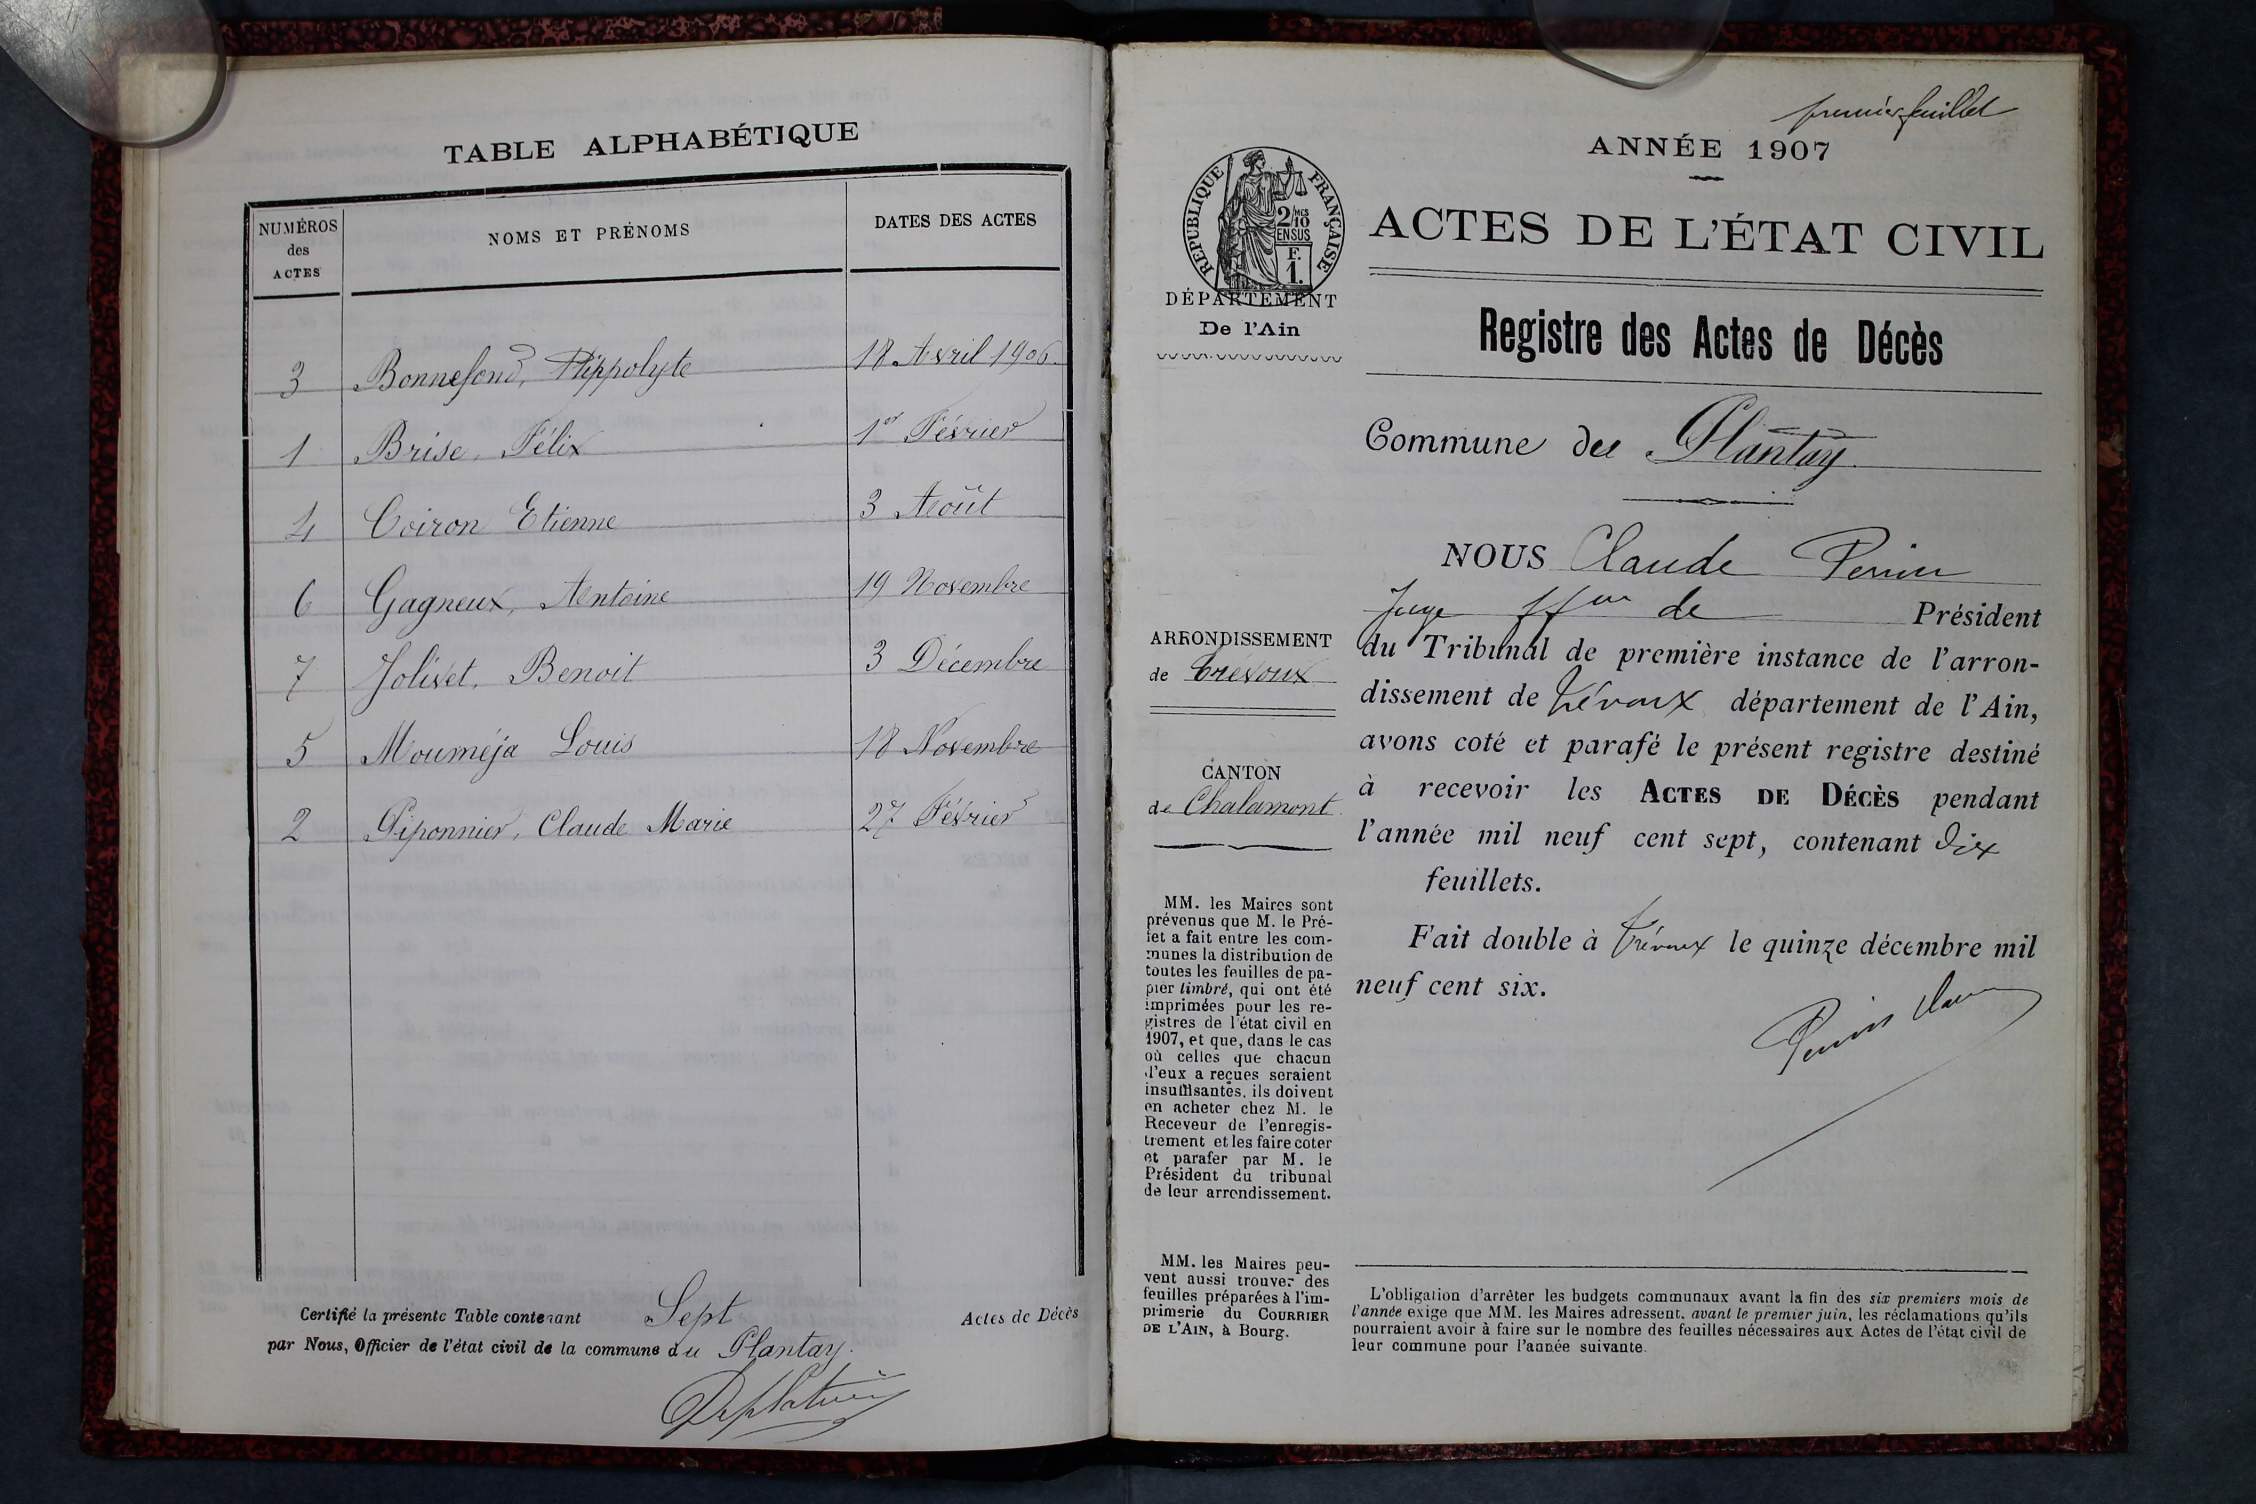 TABLE ALPHABÉTIQUE
NUMÉROS des ACTES
NOMS ET PRÉNOMS
DATES DES ACTES
3 Bonnefond, Hippolyte 18 Avril 1906.
1 Brise, Félix 1er Février
4 Coiron Etienne 3 Août
6 Gagneux, Antoine 19 Novembre
7 Jolivet, Benoit 3 Décembre
5 Mouméja Louis 18 Novembre
2 Piponnier, Claude Marie 27 Février
Certifié la présente Table contenant Sept Actes de Décès
par Nous, Officier de l'état civil de la commune du Plantay.
premier feuillet
ANNÉE 1907
RÉPUBLIQUE FRANÇAISE
2/10 MES
EN SUS
F.
1.
ACTES DE L'ÉTAT CIVIL
DÉPARTEMENT
De l'Ain
Registre des Actes de Décès
Commune du Plantay
NOUS Claude Perrin
Juge ffon de Président
du Tribunal de première instance de l'arron-
dissement de Trévoux département de l'Ain,
avons coté et parafé le présent registre destiné
à recevoir les ACTES DE DÉCÈS pendant
l'année mil neuf cent sept, contenant Dix
feuillets.
Fait double à Trévoux le quinze décembre mil
neuf cent six.
Perrin Claude
ARRONDISSEMENT
de Trevoux
CANTON
de Chalamont
MM. les Maires sont
prévenus que M. le Pré-
fet a fait entre les com-
munes la distribution de
toutes les feuilles de pa-
pier timbré, qui ont été
imprimées pour les re-
gistres de l'état civil en
1907, et que, dans le cas
où celles que chacun
d'eux a reçues seraient
insuffisantes, ils doivent
en acheter chez M. le
Receveur de l'enregis-
trement et les faire coter
et parafer par M. le
Président du tribunal
de leur arrondissement.
MM. les Maires peu-
vent aussi trouver des
feuilles préparées à l'im-
primerie du COURRIER
DE L'AIN, à Bourg.
L'obligation d'arrêter les budgets communaux avant la fin des six premiers mois de
l'année exige que MM. les Maires adressent, avant le premier juin, les réclamations qu'ils
pourraient avoir à faire sur le nombre des feuilles nécessaires aux Actes de l'état civil de
leur commune pour l'année suivante.